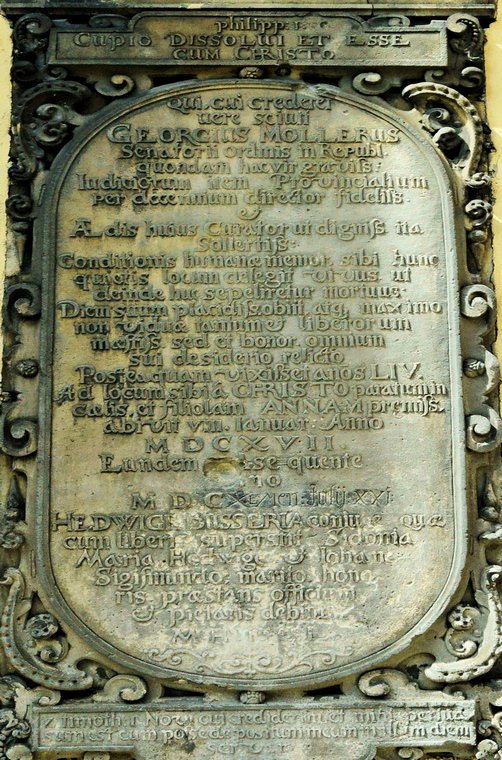 philipp: 1.
CUPIO DISSOLUI ET ESSE
CUM CHRISTO
Qui, cui crederet
uere sciuit
GEORGIUS MOLLERUS
Senatorii ordinis in Republ:
quondam hac vir gravis:
Iudiciorum item Provincialium
per decennium director fidelis:
&
Ædis huius Curator ut digniss: ita
Sollertiss:
Conditionis humanæ memor, sibi hunc
quietis locum adlegit vivus, ut
deinde huc sepeliretur mortuus:
Diem suum placidiss: obiit, atq; maximo
non viduæ tantum & liberorum
mæstiss: sed et bonor: omnium
sui desiderio relicto
Posteaquam vixisset anos LIV.
Ad locum sibi a CHRISTO paratum in
cælis, et filiolam ANNAM præmiss:
abivit VIII. Ianuar: Anno
MDCXVII.
Eundem sequente
Iulii XXI
HEDWIGE
cum liberi superstit: Sidonia
Maria, Hedwige & Iohane
Sigismundo, marito hono
ris, præstans officium
& pietatis debitum
2 Timoth: 1 Novi cui crediderim et mihi persua
sum est eum potis: depositum meum in illum diem
servare